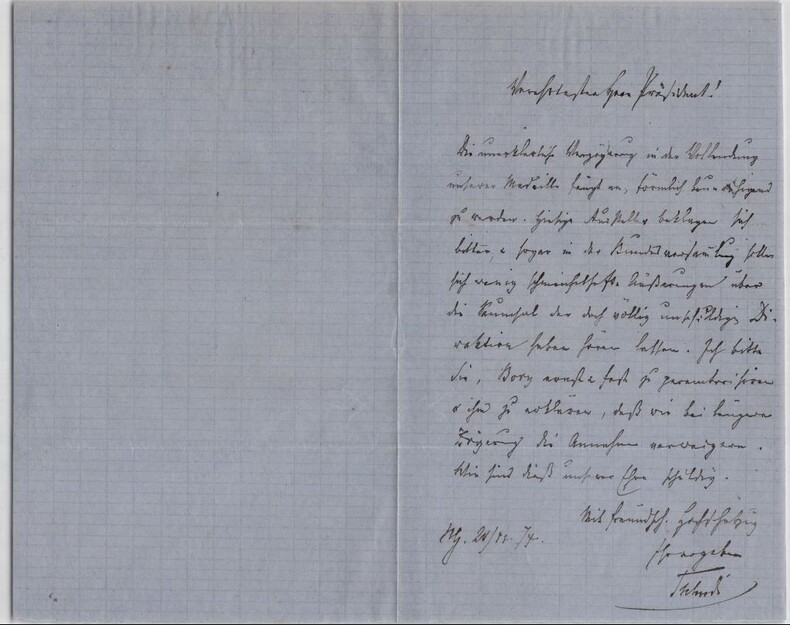 Verehrtester Herr Präsident!
Die unerklärliche Verzögerung in der Vollendung
unserer Medaille fängt an, förmlich
zu werden. Hiesige Aussteller beklagen sich
bitter, & sogar in der Bundesversammlung sollen
sich wenig schmeichelhafte Äußerungen über
die Saumsal der doch völlig unschuldigen Di-
rektion haben hören lassen. Ich bitte
Sie, Bovy ernst & fest zu peremtorisiren
& ihm zu erklären, daß wir bei längerer
Zögerung die Annahme verweigern.
Wir sind dieß unserer Ehre schuldig.
Mit freundsch. Hochschätzung
Ihr ergeben
Tschudi